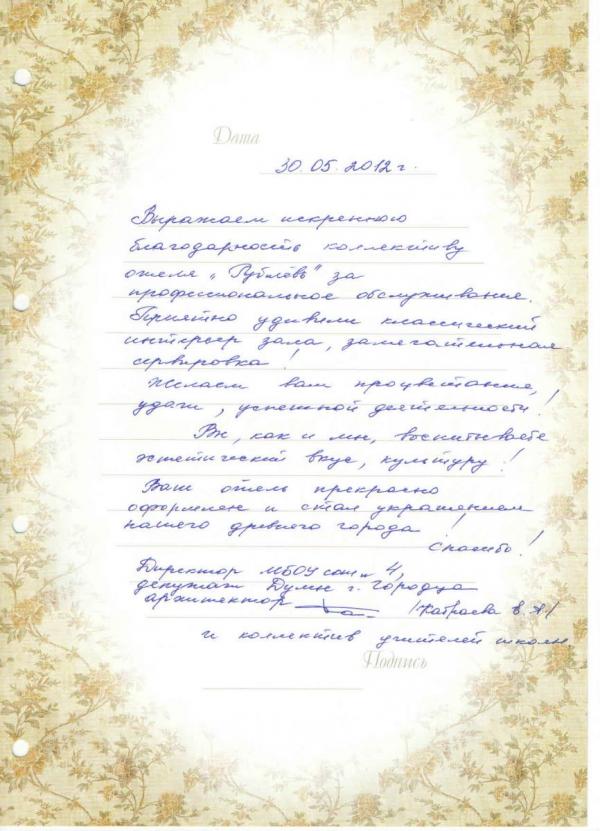 Дата
30.05.2012 г.
Выражаем искреннюю
благодарность коллективу
отеля „Рублёвъ" за
профессиональное обслуживание.
Приятно удивили классический
интерьер зала, замечательная
сервировка!
Желаем вам процветания,
удачи, успешной деятельности!
Вы, как и мы, воспитываете
эстетический вкус, культуру!
Ваш отель прекрасно
оформлен и стал украшением
нашего древнего города!
Спасибо!
Директор МБОУ сош 4,
депутат Думы г. Городца
архитектор
и коллектив учителей школы.
Подпись